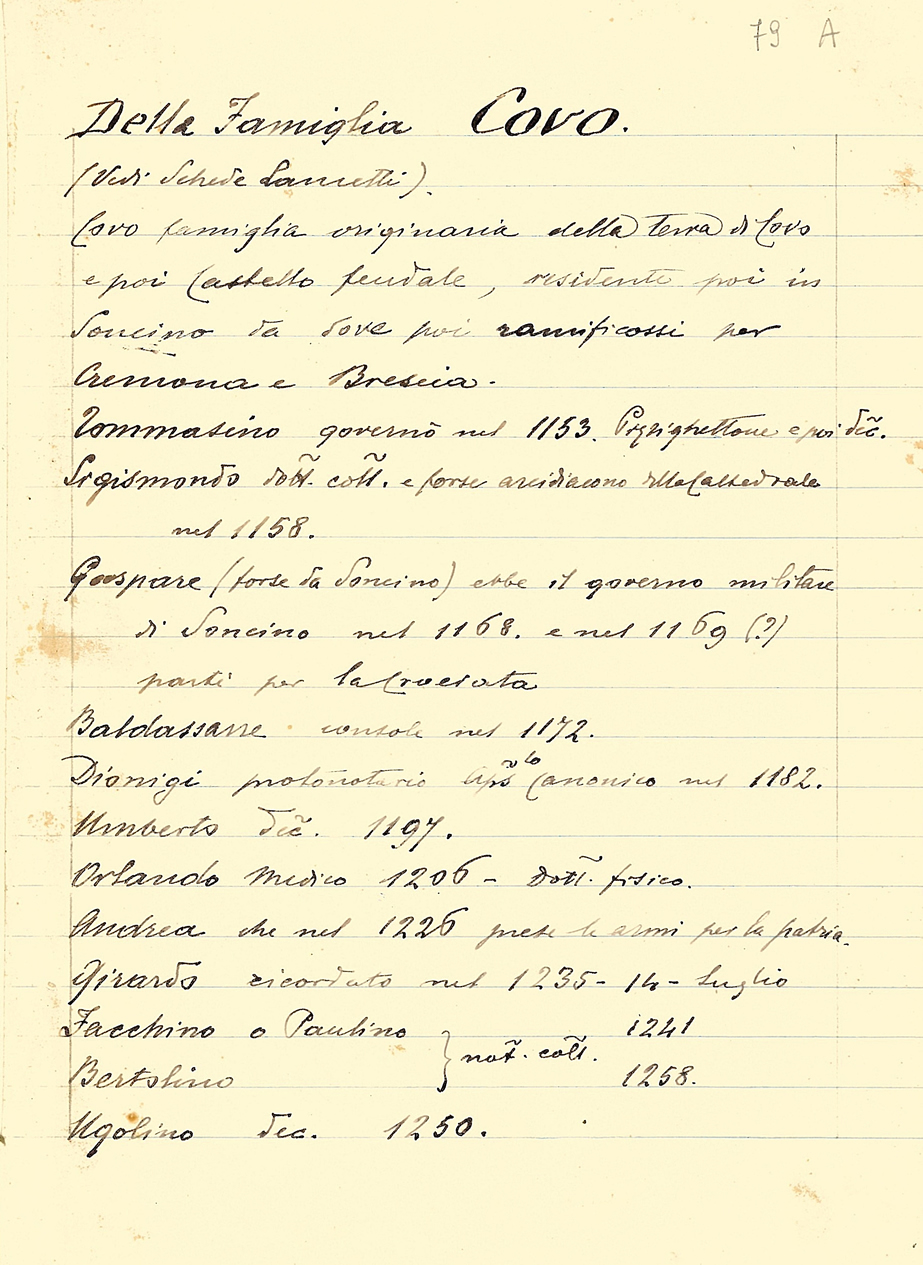 79 A
Della Famiglia Covo.
(Vedi Schede Lancetti).
Covo famiglia originaria della terra di Covo
e poi Castello feudale, residente poi in
Soncino da dove poi ramificossi per
Cremona e Brescia.
Tommasino governò nel 1153. Pizzighettone e poi dec̃.
Sigismondo dott̃. coll̃. e forse arcidiacono della Cattedrale
nel 1158.
Gaspare (forse da Soncino) ebbe il governo militare
di Soncino nel 1168. e nel 1169 (?)
partì per la Crociata
Baldassarre console nel 1172.
Dionigi protonotario Apõs lo Canonico nel 1182.
Umberto dec̃. 1197.
Orlando Medico 1206 - Dott̃. fisico.
Andrea che nel 1226 prese le armi per la patria.
Girardo ricordato nel 1235 - 14 - Luglio
Facchino o Paulino 1241
} not̃. coll̃.
Bertolino 1258.
Ugolino dec. 1250.